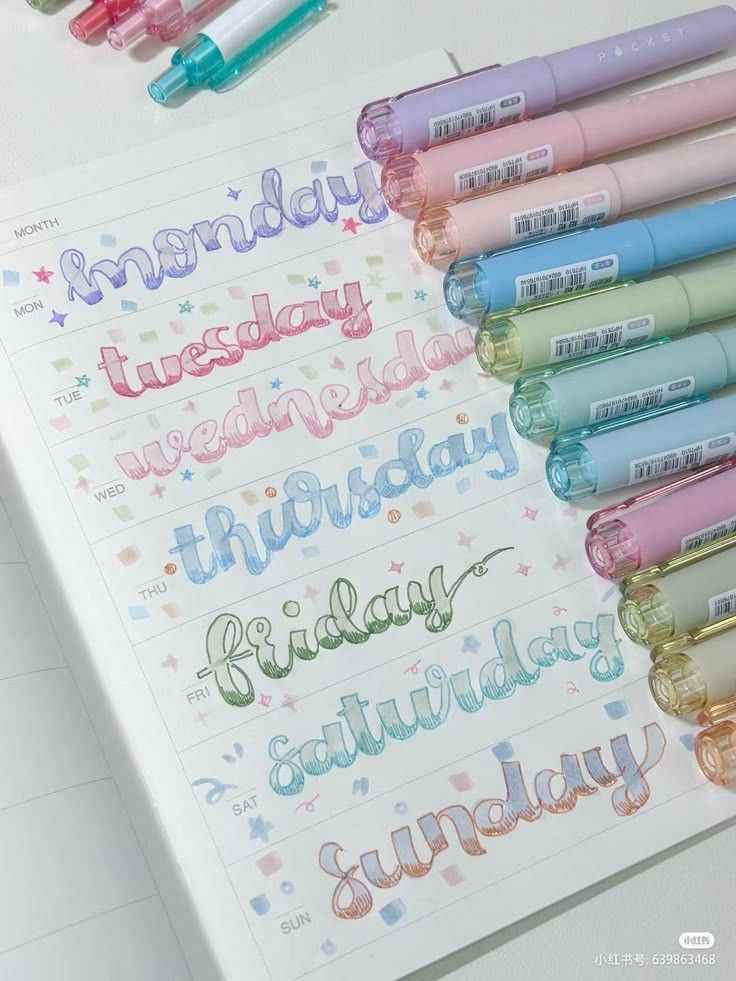 POCKET
MONTH
MON
monday
TUE
tuesday
WED
wednesday
THU
thursday
FRI
friday
SAT
saturday
SUN
sunday
小红书
小红书号: 639863468